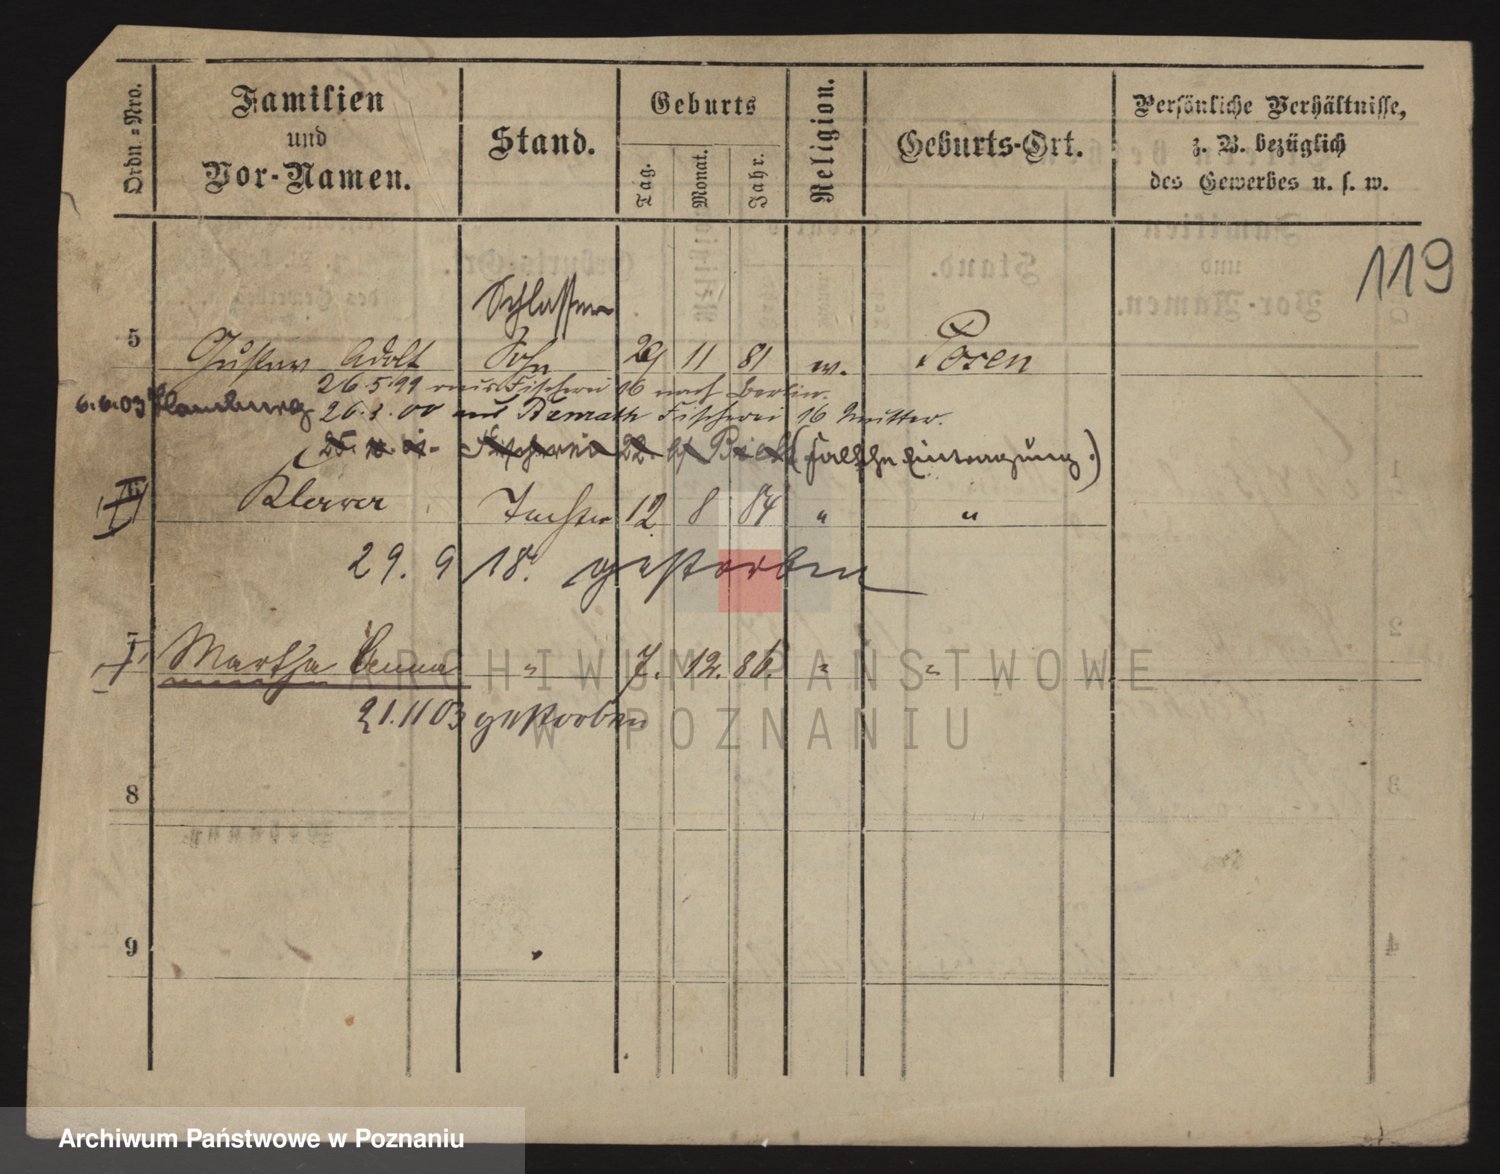 Ordn.=Nro.
Familien
und
Vor-Namen.
Stand.
Geburts
Tag.
Monat.
Jahr.
Religion.
Geburts-Ort.
Persönliche Verhältnisse,
z. B. bezüglich
des Gewerbes u. s. w.
119
Schlosser
5 Gustav Adolf Sohn 29 11 81 w. Posen
26.5.99 aus Fischerei 16 nach Berlin.
6.6.03 26.3.00 aus Benrath Fischerei 16 Mutter.
Fischerei 22. (falsche Eintragung.)
6 Klara Tochter 12 8 84 " "
29. 9 18. gestorben
7 Martha Emma " 7. 12. 86. " "
21.11 03 gestorben
8
9
ARCHIWUM PAŃSTWOWE
W POZNANIU
Archiwum Państwowe w Poznaniu